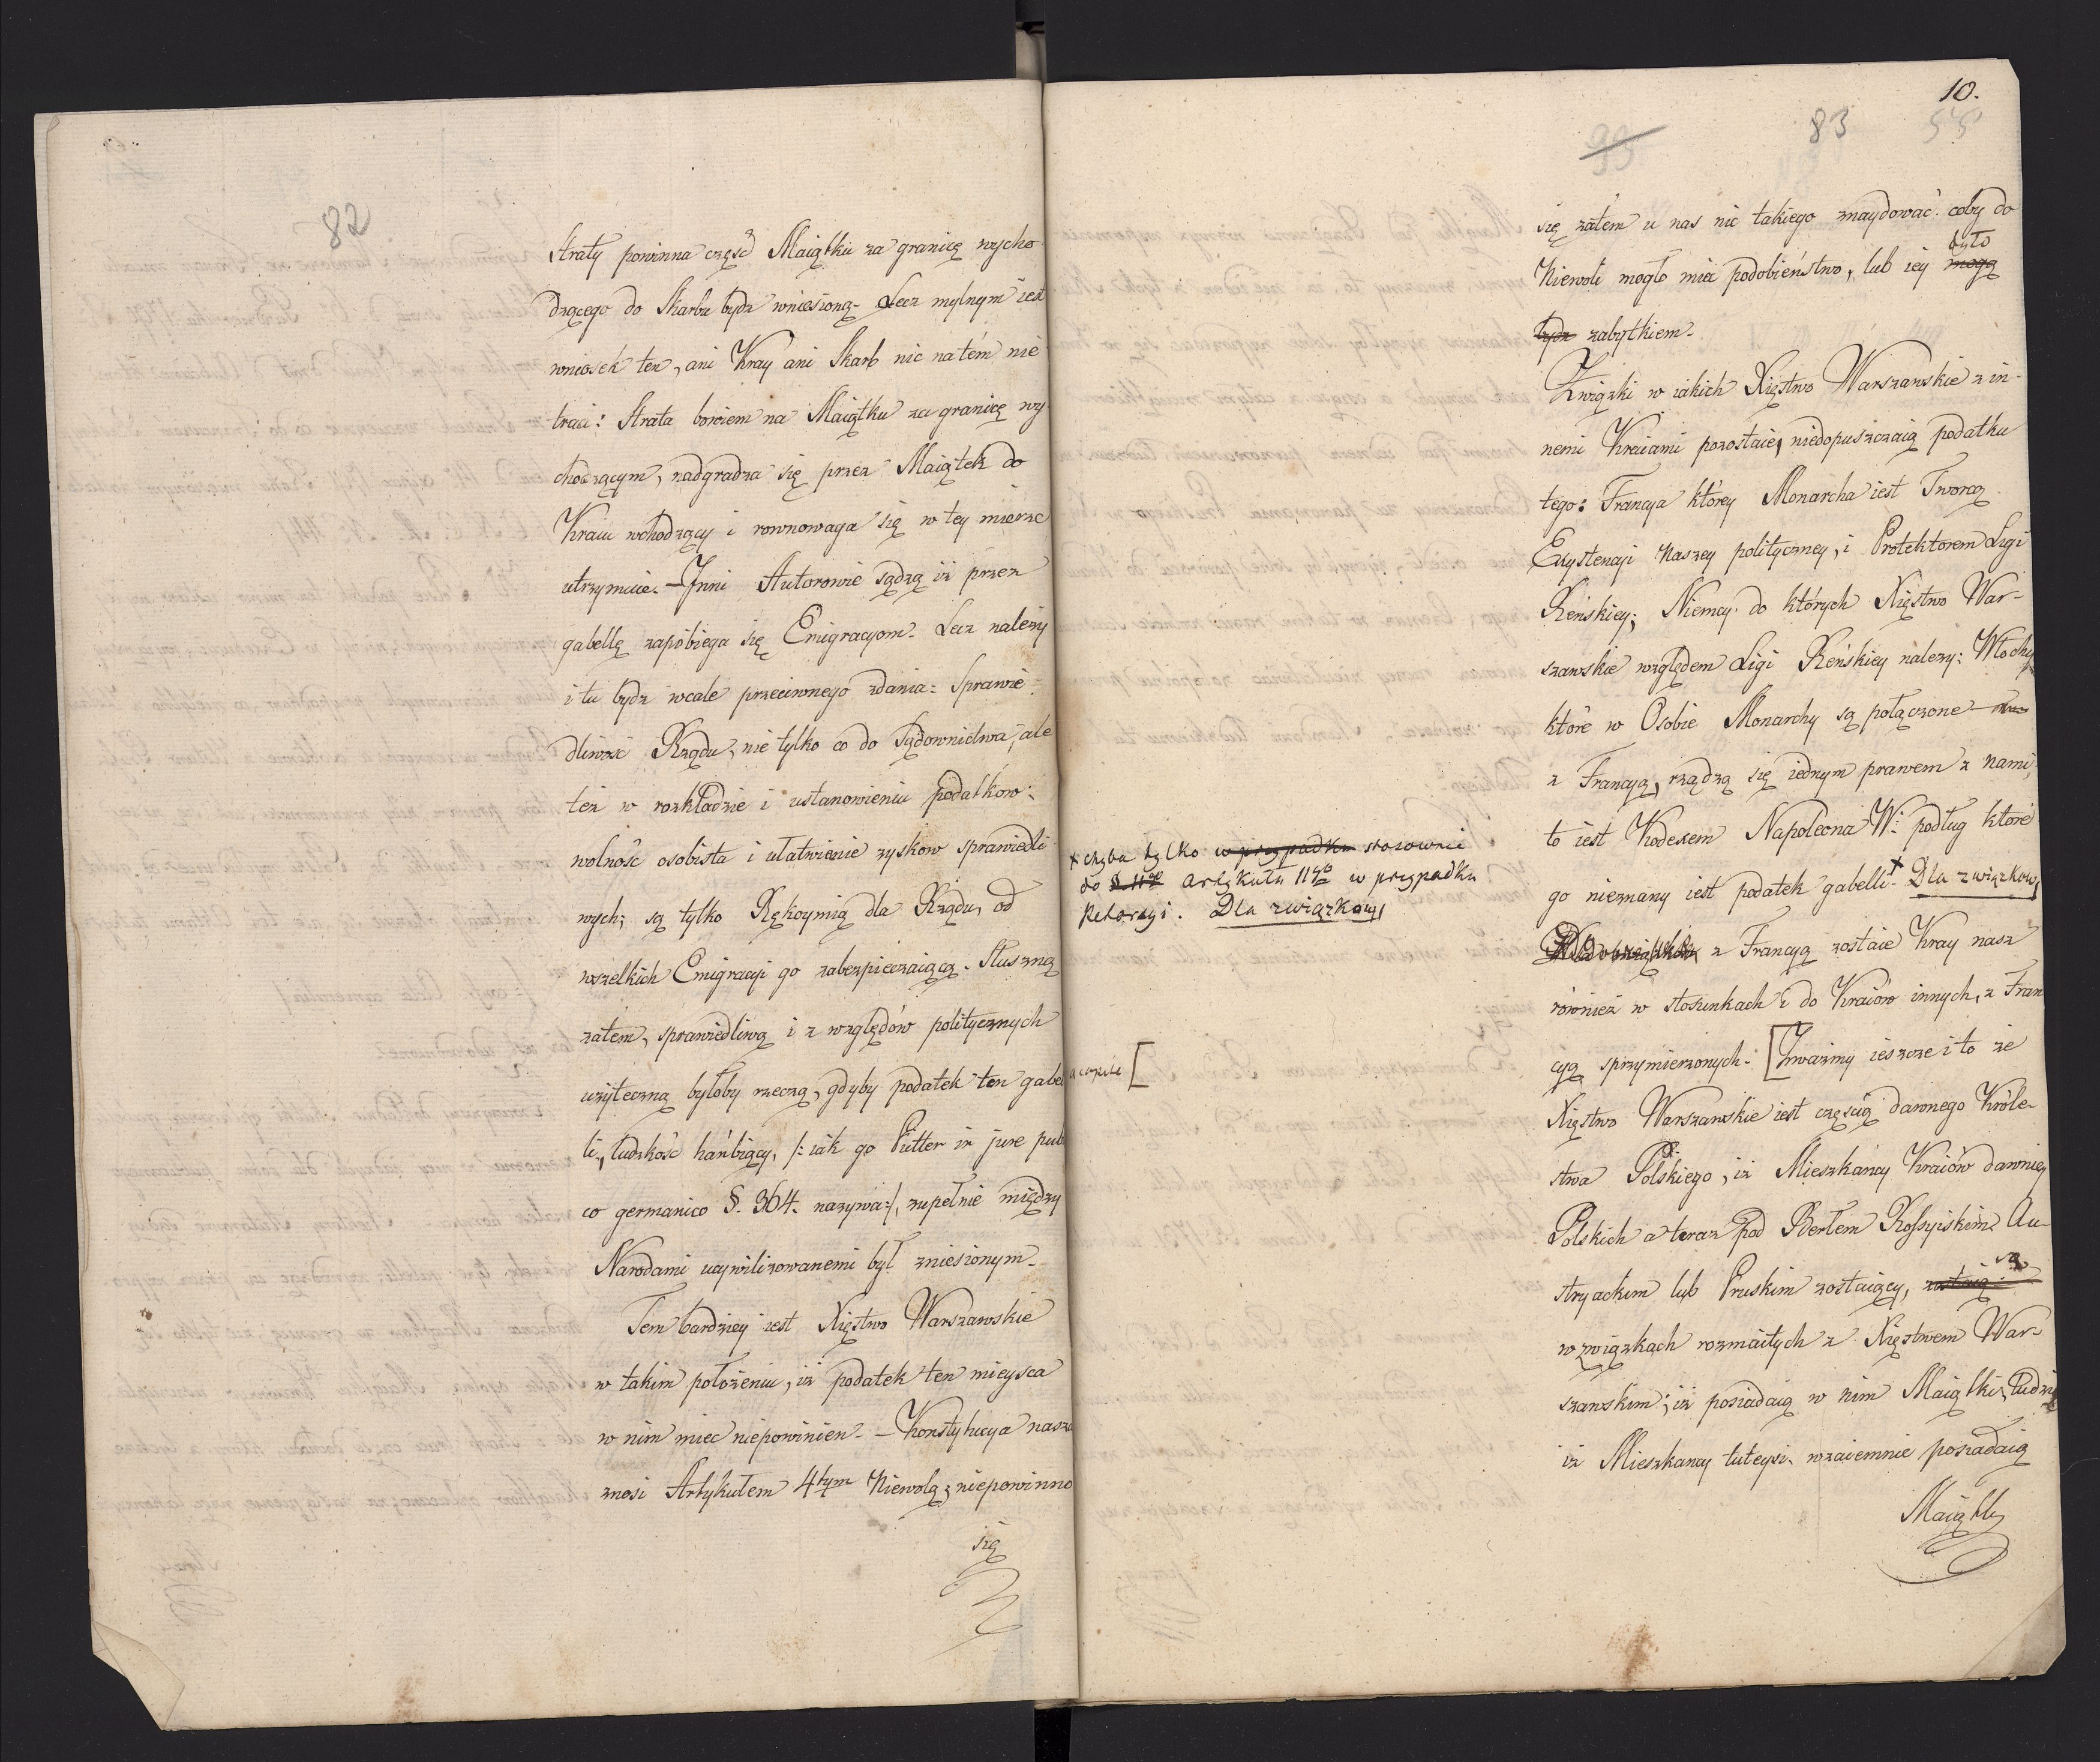 82
straty powinna część Maiątku za granicę wycho
dzącego do Skarbu bydź wniesioną. Lecz mylnym iest
wniosek ten, ani Kray ani Skarb nic na tém nie
traci: strata bowiem na Maiątku za granicę wy
chodzącym, nadgradza się przez Maiątek do
Kraiu wchodzący i rownowaga się w tey mierze
utrzymuie. – Inni Autorowie sądzą iż przez
gabellę zapobiega się Emigracyom. Lecz należy
i tu bydź wcale przeciwnego zdania: sprawie
dliwość Rządu, nie tylko co do Sądownictwa, ale
też w rozkładzie i ustanowieniu podatków:
wolność osobista i ułatwienie zysków sprawiedli
wych; są tylko Rękoymią dla Rządu, od
wszelkich Emigracyi go zabezpieczaiącą. Słuszną
zatem, sprawiedliwą i z względów politycznych
użyteczną byłoby rzeczą, gdyby podatek ten gabel
li, ludzkość hańbiący, /: iak go Pütter in jure publi
co germanico §. 364. nazywa :/, zupełnie między
Narodami ucywilizowanemi był zniesionym.
Tem bardziey iest Xięstwo Warszawskie
w takim położeniu, iż podatek ten mieysca
w nim miec niepowinien. – Konstytucya nasza
znosi Artykułem 4tym Niewolą; niepowinno
się
10.
83 55
93
się zatém u nas nic takiego znaydować coby do
było
Niewoli mogło miec podobieństwo, lub iey mogą
bydz zabytkiem.
Związki w iakich Xięstwo Warszawskie z in-
nemi Kraiami pozostaie, niedopuszczaią podatku
tego: Francya którey Monarcha iest Tworcą
Exystencyi Naszey polityczney, i Protektorem Ligi
Reńskiey; Niemcy do których Xięstwo War-
szawskie względem Ligi Reńskiey należy; Włochy
które w Osobie Monarchy są połączone
z Francyą, rządzą się iednym prawem z nami,
to iest Kodexem Napoleona W: podług które
go nieznany iest podatek gabelli + Dla związkow,
z Francyą zostaie Kray nasz
również w stosunkach i do Kraiów innych, z Fran
cyą sprzymierzonych. [Zważmy ieszcze i to że
Xięstwo Warszawskie iest częścią dawnego Króle-
stwa Polskiego, iż Mieszkańcy Kraiów dawniey
Polskich a teraz pod Berłem Rossyiskim Au-
są
stryackim lub Pruskim zostaiący, zostaią
w związkach rozmaitych z Xięstwem War-
szawskim; iż posiadaią w nim Maiątki,
iż Mieszkancy tuteysi wzaiemnie posiadaią
Maiątki
+ chyba tylko w przypadku stosownie
do § 11go Artykułu 11go w przypadku
Retorsyi. Dla związkow,
[